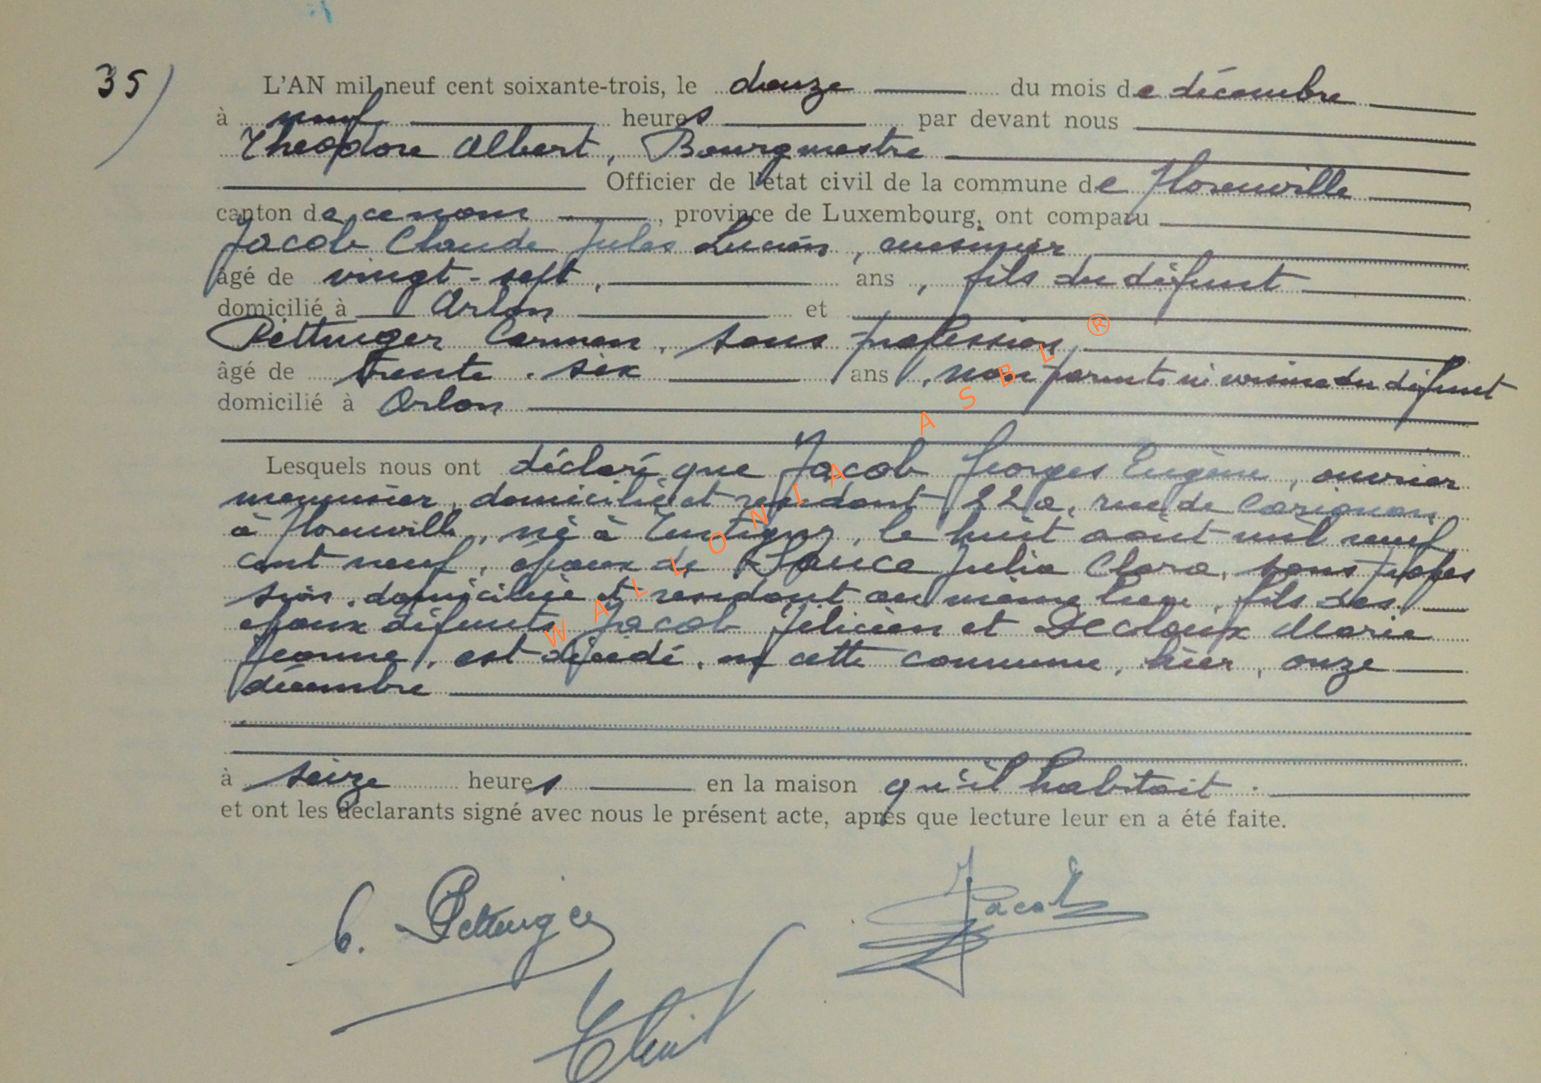 35)
L'AN mil neuf cent soixante-trois, le douze du mois de décembre
à neuf heures par devant nous
Théodore Albert, Bourgmestre
Officier de l'état civil de la commune de Florenville
canton de ce nom, province de Luxembourg, ont comparu
Jacob Claude Jules Lucien, cuisinier
âgé de vingt-sept, ans, fils du défunt
domicilié à Arlon et
Pettinger Carmen, sans profession,
âgé de trente-six ans, non parente ni voisine du défunt
domicilié à Arlon
Lesquels nous ont déclaré que Jacob Georges Eugène, ouvrier
menuisier, domicilié et résidant 22a, rue de Carignan,
à Florenville, né à Tintigny, le huit août mil neuf
cent neuf, époux de France Julia Clara, sans profes
sion, domiciliée et résidant au même lieu, fils des
époux défunts Jacob Félicien et Decloux Marie
Jeanne, est décédé, en cette commune, hier, onze
décembre
à seize heures en la maison qu'il habitait.
et ont les déclarants signé avec nous le présent acte, après que lecture leur en a été faite.
C. Pettinger
Jacob
WALLONIA ASBL ®